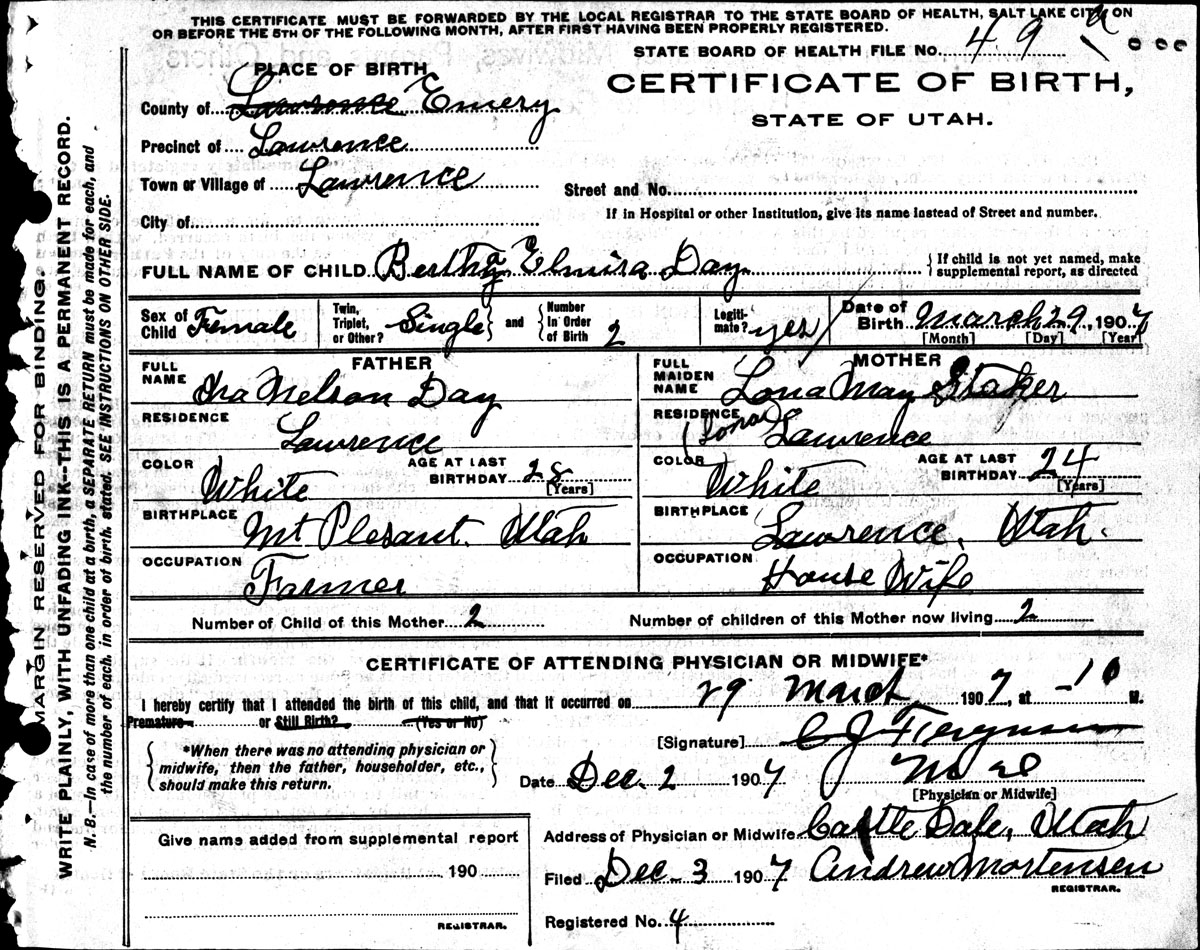 THIS CERTIFICATE MUST BE FORWARDED BY THE LOCAL REGISTRAR TO THE STATE BOARD OF HEALTH, SALT LAKE CITY, ON
OR BEFORE THE 5TH OF THE FOLLOWING MONTH, AFTER FIRST HAVING BEEN PROPERLY REGISTERED.
STATE BOARD OF HEALTH FILE No. 49
PLACE OF BIRTH
CERTIFICATE OF BIRTH,
STATE OF UTAH.
County of Lawrence Emery
Precinct of Lawrence
Town or Village of Lawrence
Street and No.
If in Hospital or other Institution, give its name instead of Street and number.
City of
FULL NAME OF CHILD Bertha Elmira Day
{If child is not yet named, make supplemental report, as directed
Sex of Child Female
Twin, Triplet, or Other? Single} and {Number In Order of Birth 2
Legitimate? yes
Date of Birth March 29, 1907
[Month] [Day] [Year]
FATHER
FULL NAME Ira Nelson Day
RESIDENCE Lawrence
COLOR White
AGE AT LAST BIRTHDAY 28
[Years]
BIRTHPLACE Mt Plesant. Utah
OCCUPATION Farmer
MOTHER
FULL MAIDEN NAME Lona May Staker
RESIDENCE (Lona) Lawrence
COLOR White
AGE AT LAST BIRTHDAY 24
[Years]
BIRTHPLACE Lawrence. Utah.
OCCUPATION House Wife
Number of Child of this Mother 2
Number of children of this Mother now living 2
CERTIFICATE OF ATTENDING PHYSICIAN OR MIDWIFE*
I hereby certify that I attended the birth of this child, and that it occurred on 29 March 1907, at 10 M.
Premature or Still Birth? (Yes or No)
{*When there was no attending physician or
midwife, then the father, householder, etc.,
should make this return.}
[Signature] C J Ferguson
Date Dec. 2 1907
[Physician or Midwife]
Give name added from supplemental report
190
REGISTRAR.
Address of Physician or Midwife Castle Dale, Utah
Filed Dec. 3 1907 Andrew Mortensen
REGISTRAR.
Registered No. 4
MARGIN RESERVED FOR BINDING.
WRITE PLAINLY, WITH UNFADING INK--THIS IS A PERMANENT RECORD.
N. B.--In case of more than one child at a birth, a SEPARATE RETURN must be made for each, and
the number of each, in order of birth, stated. SEE INSTRUCTIONS ON OTHER SIDE.